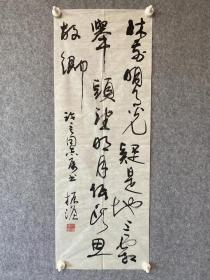 床前明月光疑是地上霜
舉頭望明月低頭思
故鄉